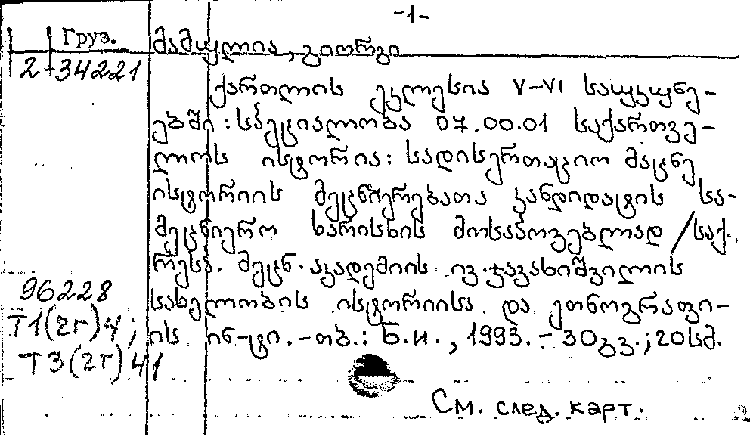 -1-
Груз.
მამულია, გიორგი
2-34221
ქართლის ეკლესია V-VI საუკუნე-
ებში: სპეციალობა 07.00.01 საქართვე-
ლოს ისტორია: სადისერტაციო მაცნე
ისტორიის მეცნიერებათა კანდიდატის სა-
მეცნიერო ხარისხის მოსაპოვებლად / საქ.
რესპ. მეცნ. აკადემიის ივ. ჯავახიშვილის
96228
სახელობის ისტორიისა და ეთნოგრაფი-
T1(2г)4;
ის ინ-ტი. -თბ.: Б.и., 1993. - 30გვ.; 20სმ.
T3(2г)41
См. след. карт.